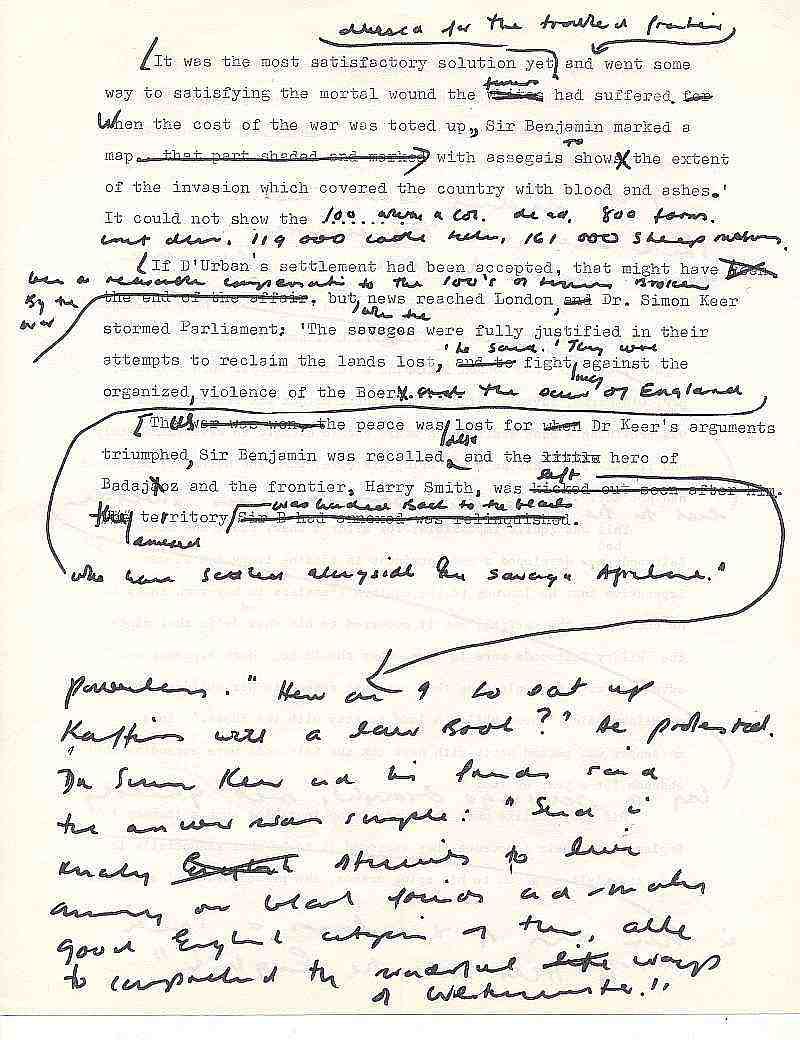 devised for the troubled frontier,
It was the most satisfactory solution yet, and went some
way to satisfying the mortal wound the whites farmers had suffered. for
When the cost of the war was toted up, Sir Benjamin marked a
map, that part shaded and marked with assegais to show the extent
of the invasion which covered the country with blood and ashes.'
It could not show the 100 dead, 800 farms
119 000 cattle 161 000 sheep
If D'Urban's settlement had been accepted, that might have been
been a reasonable compensation to the 100's of Broken
By the war
the end of the affair, but, when the news reached London, and Dr. Simon Keer
stormed Parliament; 'The savages were fully justified in their
attempts to reclaim the lands lost, 'he said.' They were and to fight, against the
organized, violence of the Boer, and the of England,
Thus war was won, the peace was lost for when Dr Keer's arguments
triumphed, Sir Benjamin was recalled, and the little hero of
Badajoz and the frontier, Harry Smith, was left kicked out soon after him.
The territory Sir B had annexed was relinquished.
was handed Back to the blacks
annexed
who have settled alongside the savage Africans."
powerless. "How am I to eat up
Kaffirs with a law Book?" he protested.
Dr Simon Keer and his friends said
the answer was simple: "Send
English to live
among our black friends and make
good English citizens of them, able
to comprehend the wonderful like ways
of Westminster."